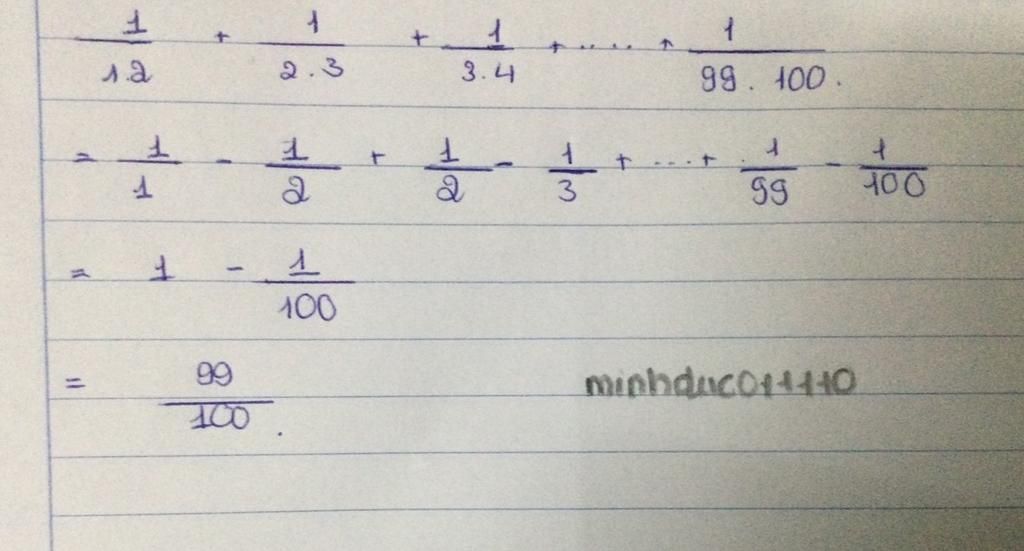 1/1.2 + 1/2.3 + 1/3.4 + ..... + 1/99.100.
= 1/1 - 1/2 + 1/2 - 1/3 + ...+ 1/99 - 1/100
= 1 - 1/100
= 99/100.
minhduc011110